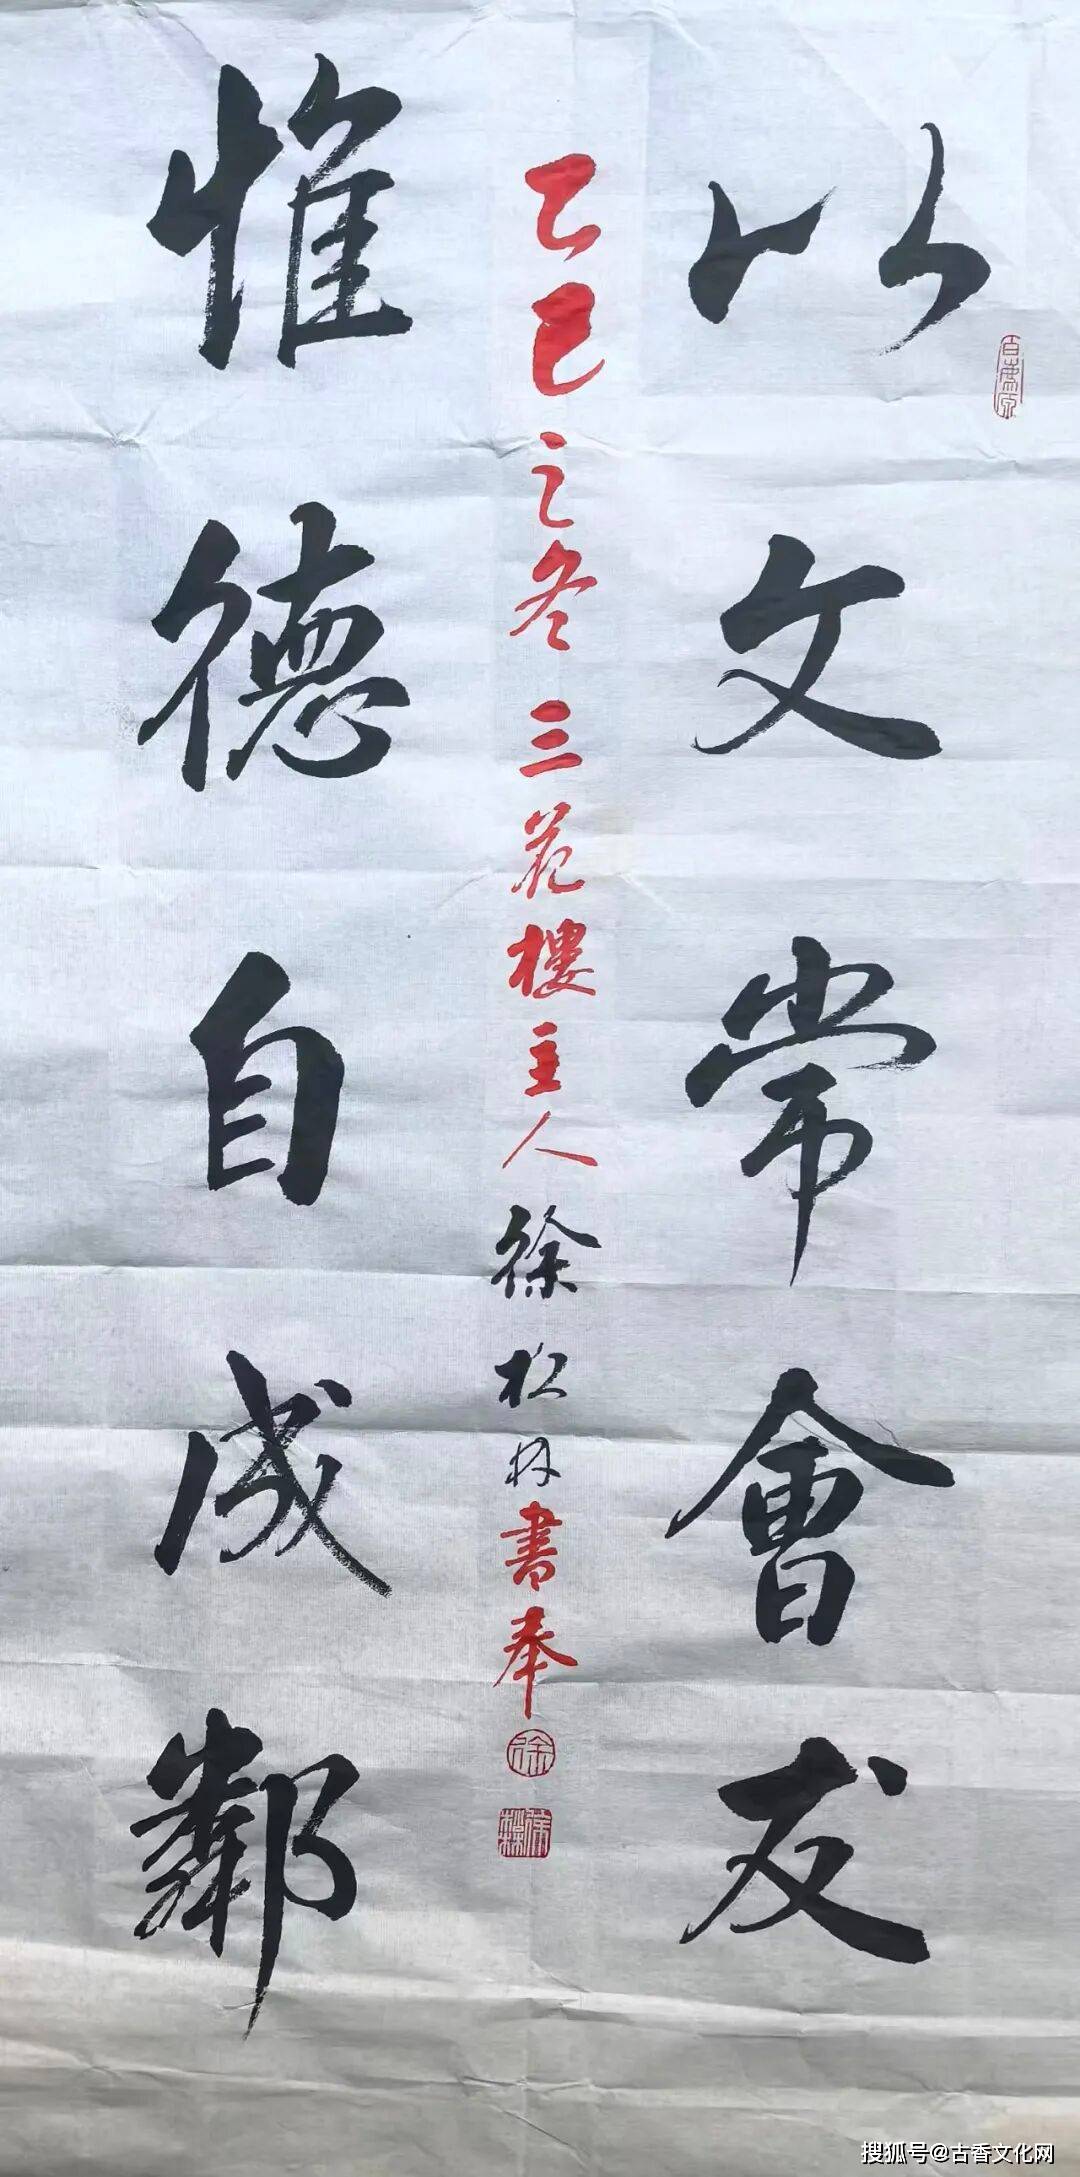 以文常會友
乙巳之冬 三花樓主人 徐松林書奉
惟德自成鄰
徐
搜狐号@古香文化网